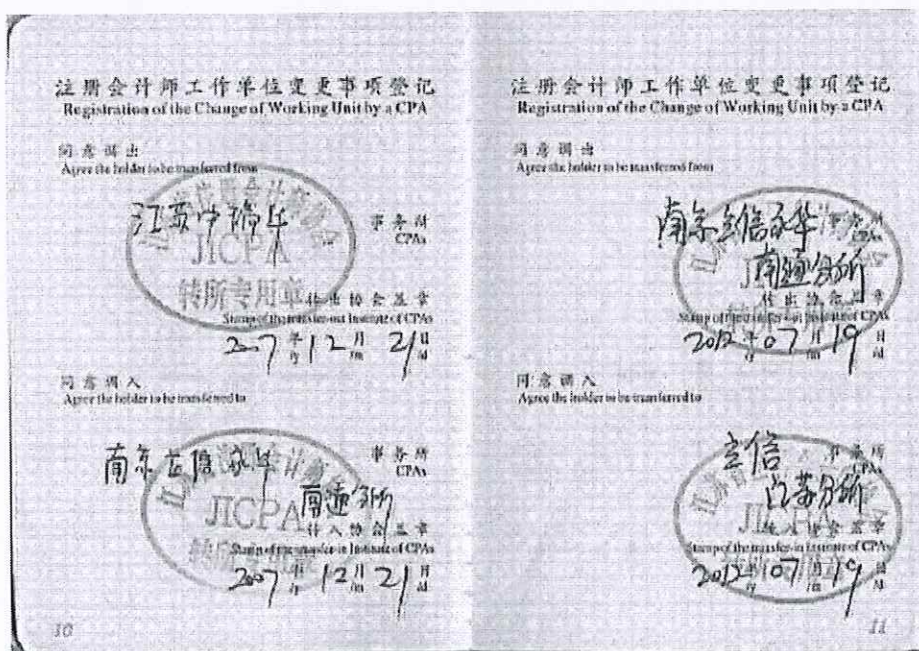 注册会计师工作单位变更事项登记
Registration of the Change of Working Unit by a CPA
同意调出
Agree the holder to be transferred from
江苏中瑞华
事务所
CPAs
JICPA
转所专用章
转出协会盖章
Stamp of the transfer-out Institute of CPAs
2007 年 12 月 21 日
/y /m /d
同意调入
Agree the holder to be transferred to
南京立信永华
事务所
CPAs
南通分所
JICPA
转入协会盖章
Stamp of the transfer-in Institute of CPAs
2007 年 12 月 21 日
/y /m /d
10
注册会计师工作单位变更事项登记
Registration of the Change of Working Unit by a CPA
同意调出
Agree the holder to be transferred from
南京立信永华
事务所
CPAs
南通分所
转出协会盖章
Stamp of the transfer-out Institute of CPAs
2012 年 07 月 19 日
/y /m /d
同意调入
Agree the holder to be transferred to
立信
事务所
CPAs
江苏分所
转入协会盖章
Stamp of the transfer-in Institute of CPAs
2012 年 07 月 19 日
/y /m /d
11